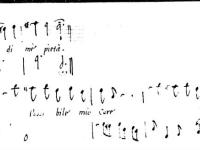 di me pietà.
bile mio Core